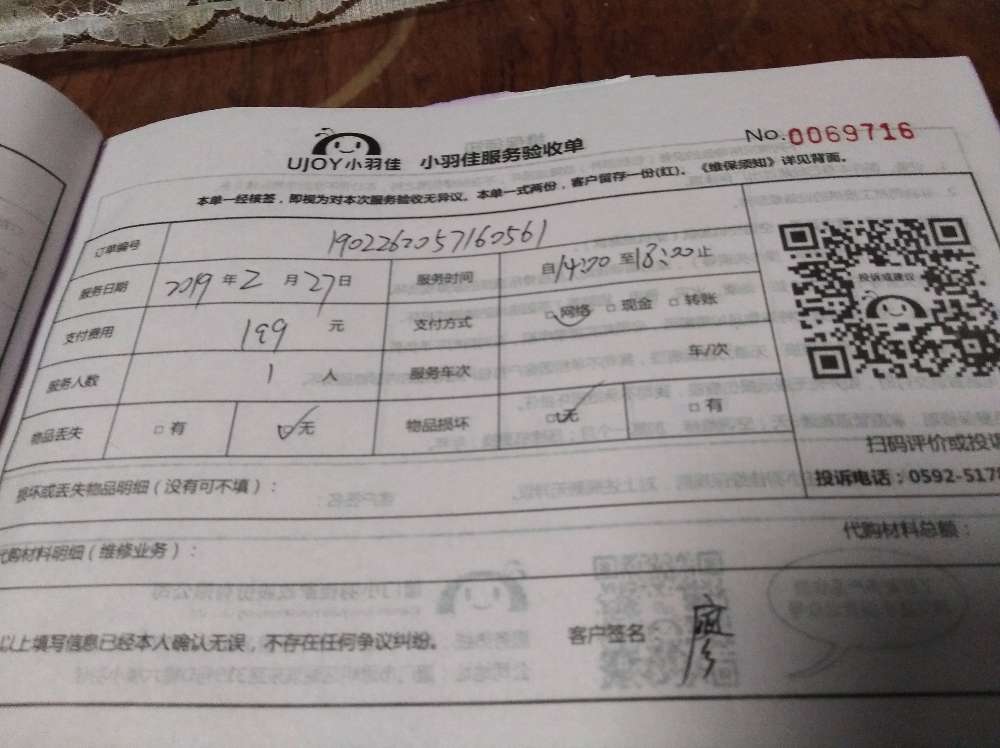 UJOY小羽佳 小羽佳服务验收单 No.0069716
本单一经核签，即视为对本次服务验收无异议。本单一式两份，客户留存一份(红)。《维保须知》详见背面。
订单编号 1902262057160561
服务日期 2019年2月27日 服务时间 自14:00至18:00止
支付费用 199元 支付方式 □网络 □现金 □转账
服务人数 1人 服务车次 车/次
物品丢失 □有 □无 物品损坏 □无 □有
投诉或建议
扫码评价或投诉
投诉电话：0592-5178
损坏或丢失物品明细（没有可不填）：
代购材料明细（维修业务）： 代购材料总额：
以上填写信息已经本人确认无误，不存在任何争议纠纷。 客户签名： 廖